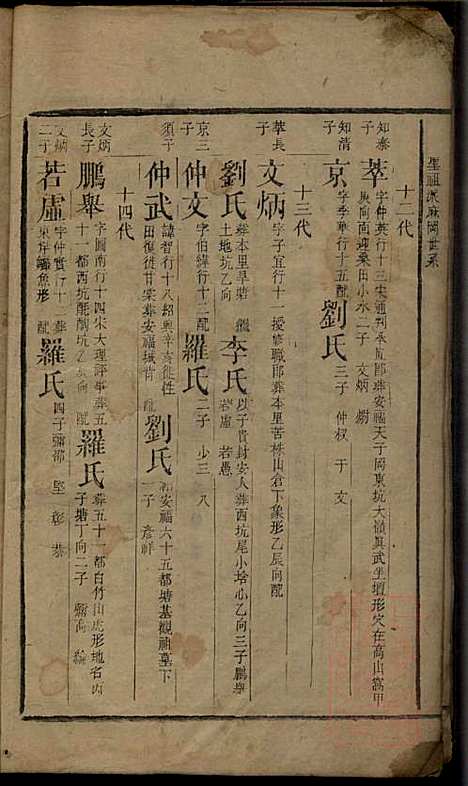 十二代
知泰子
萃
字仲英行十三宋通判承凤郎葬安福天子岡東坑大嶺眞武坐壇形穴在高山窩甲
庚向面迎桑田小水二子 文炳
知清子
京
字季華行十五配
劉氏
三子 仲权 于 文
十三代
萃長子
文炳
字子宜行十一授修職郎葬本里苦株山倉下象形乙辰向配
劉氏
葬本里旱塘
土地坑乙向
李氏
以子貴封安人葬西坑尾小培心乙向三子鵬舉
若虛 若愚
京三子
仲文
字伯緯行十二配
羅氏
二子 少三 八
仲武
諱智行十八紹興辛亥徙性
田復徙甘棠葬安福城背
劉氏
安福六十五都塘基觀祖墓下
一子 彦祥
十四代
文炳長子
鵬舉
字圖南行十四宋大理評事葬五
十一都西坑
羅氏
葬五十一都白竹山虎形地名內
子塘丁向二子
文炳二子
若虛
字仲實行十二葬
魚形 配
羅氏
四子彌邵 堅 彰 恭